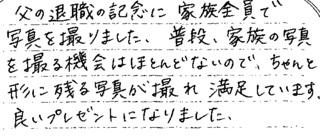 父の退職の記念に 家族全員で
写真を撮りました。 普段、家族の写真
を撮る機会はほとんどないので、ちゃんと
形に残る写真が撮れ 満足しています。
良いプレゼントになりました。